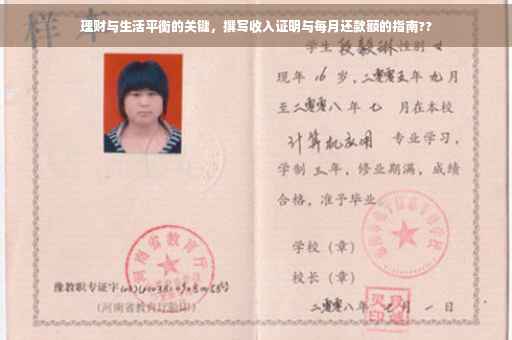 理财与生活平衡的关键，撰写收入证明与每月还款额的指南??
样本
学生段毅琳性别女
现年16岁，二零零五年九月
至二零零八年七月在本校
计算机应用 专业学习，
学制三年，修业期满，成绩
合格，准予毕业
学校（章）
校长（章）
二零零八年 月一日
河南省教育厅
豫教职专证字
（河南省教育厅验印）